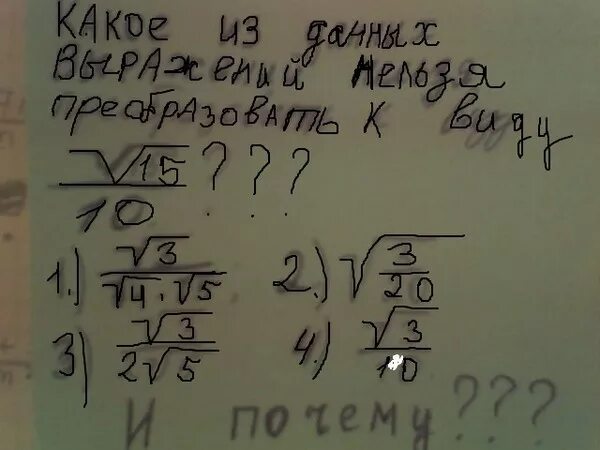 КАКОЕ ИЗ данных
ВЫРАЖЕНИЙ НЕЛЬЗЯ
ПРЕОБРАЗОВАТЬ К виду
√15/10 ? ? ?
1.) √3/(√4 · √5) 2.) √(3/20)
3) √3/(2√5) 4.) √3/10
И почему???